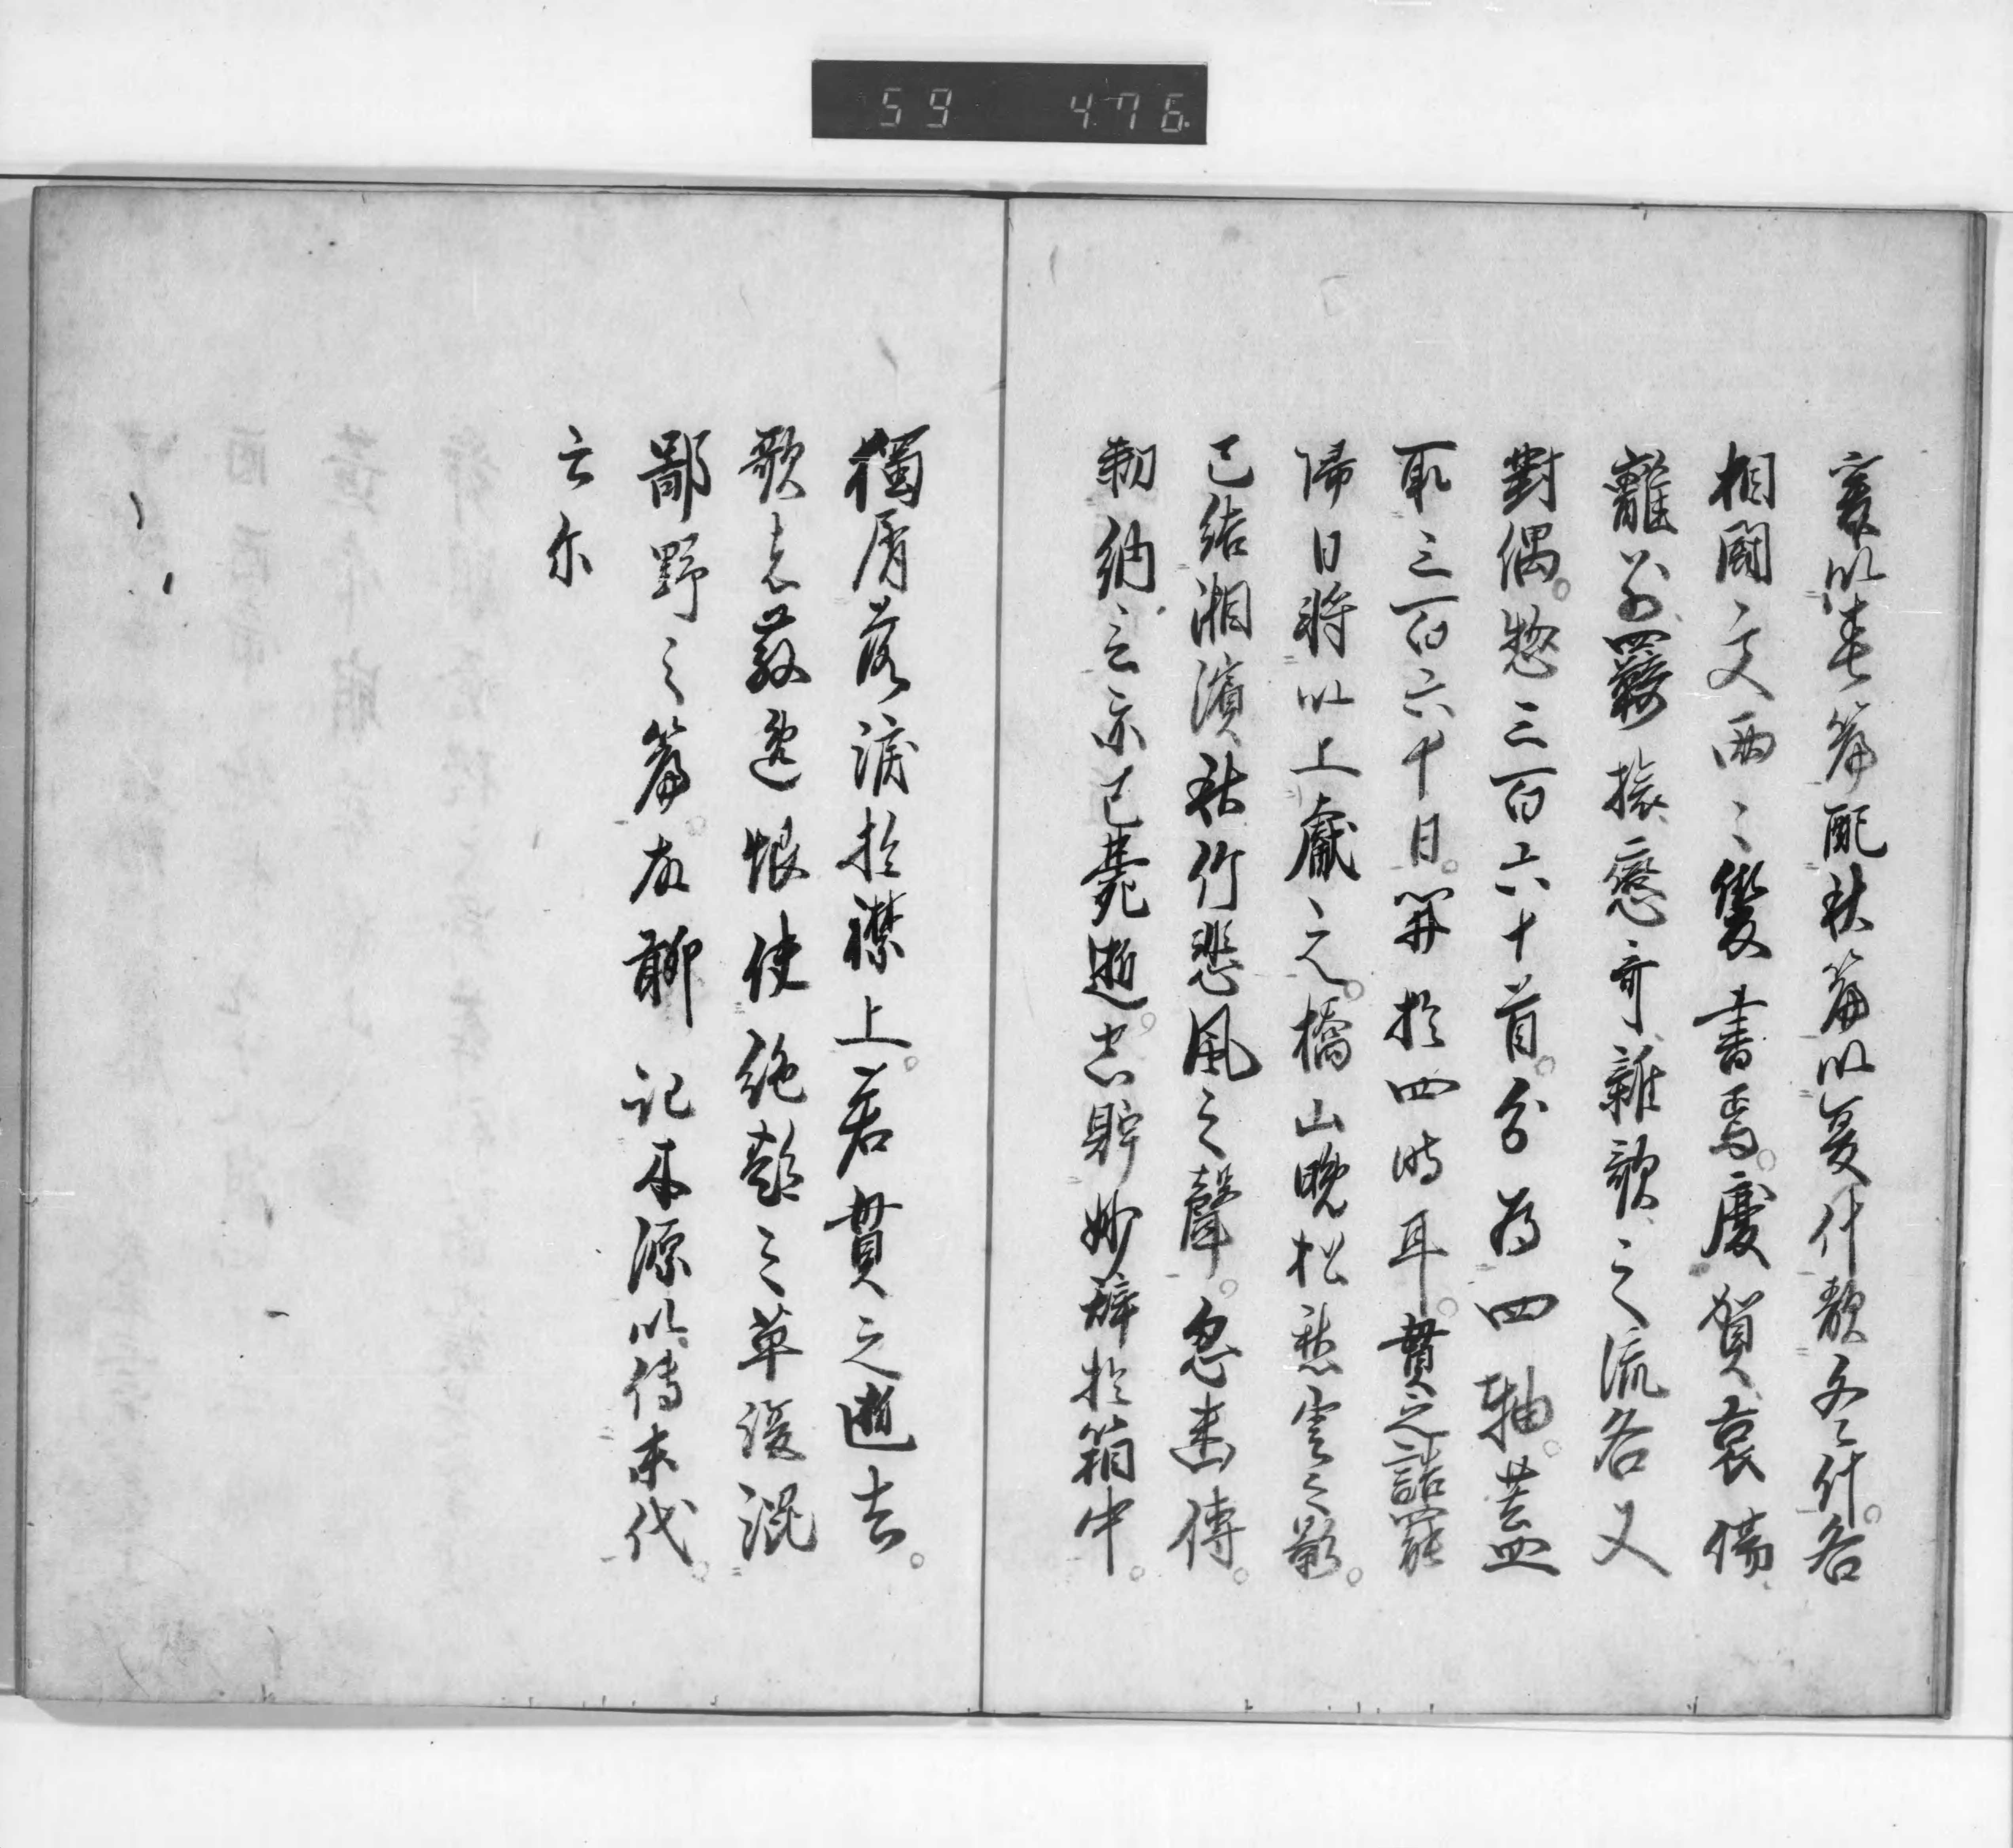 59 476
爰以春篇配秋篇以夏什敵冬什。各
相闘文兩々雙書焉。慶賀哀傷
離別羈旅戀哥雜歌之流各又
對偶。惣三百六十首。分為四軸。蓋
取三百六十日。關於四時耳。貫之詰罷
帰日将以上獻之。橋山晩松愁雲之影。
已結湘濱秋竹悲風之聲。忽幽傳。
勅納言亦已薨逝。空貯妙辞於箱中。
獨屑落涙於襟上。若貫之逝去。
歌亦散逸恨使絶艶之草復混
鄙野之篇。故聊記本源以傳末代。
云尓